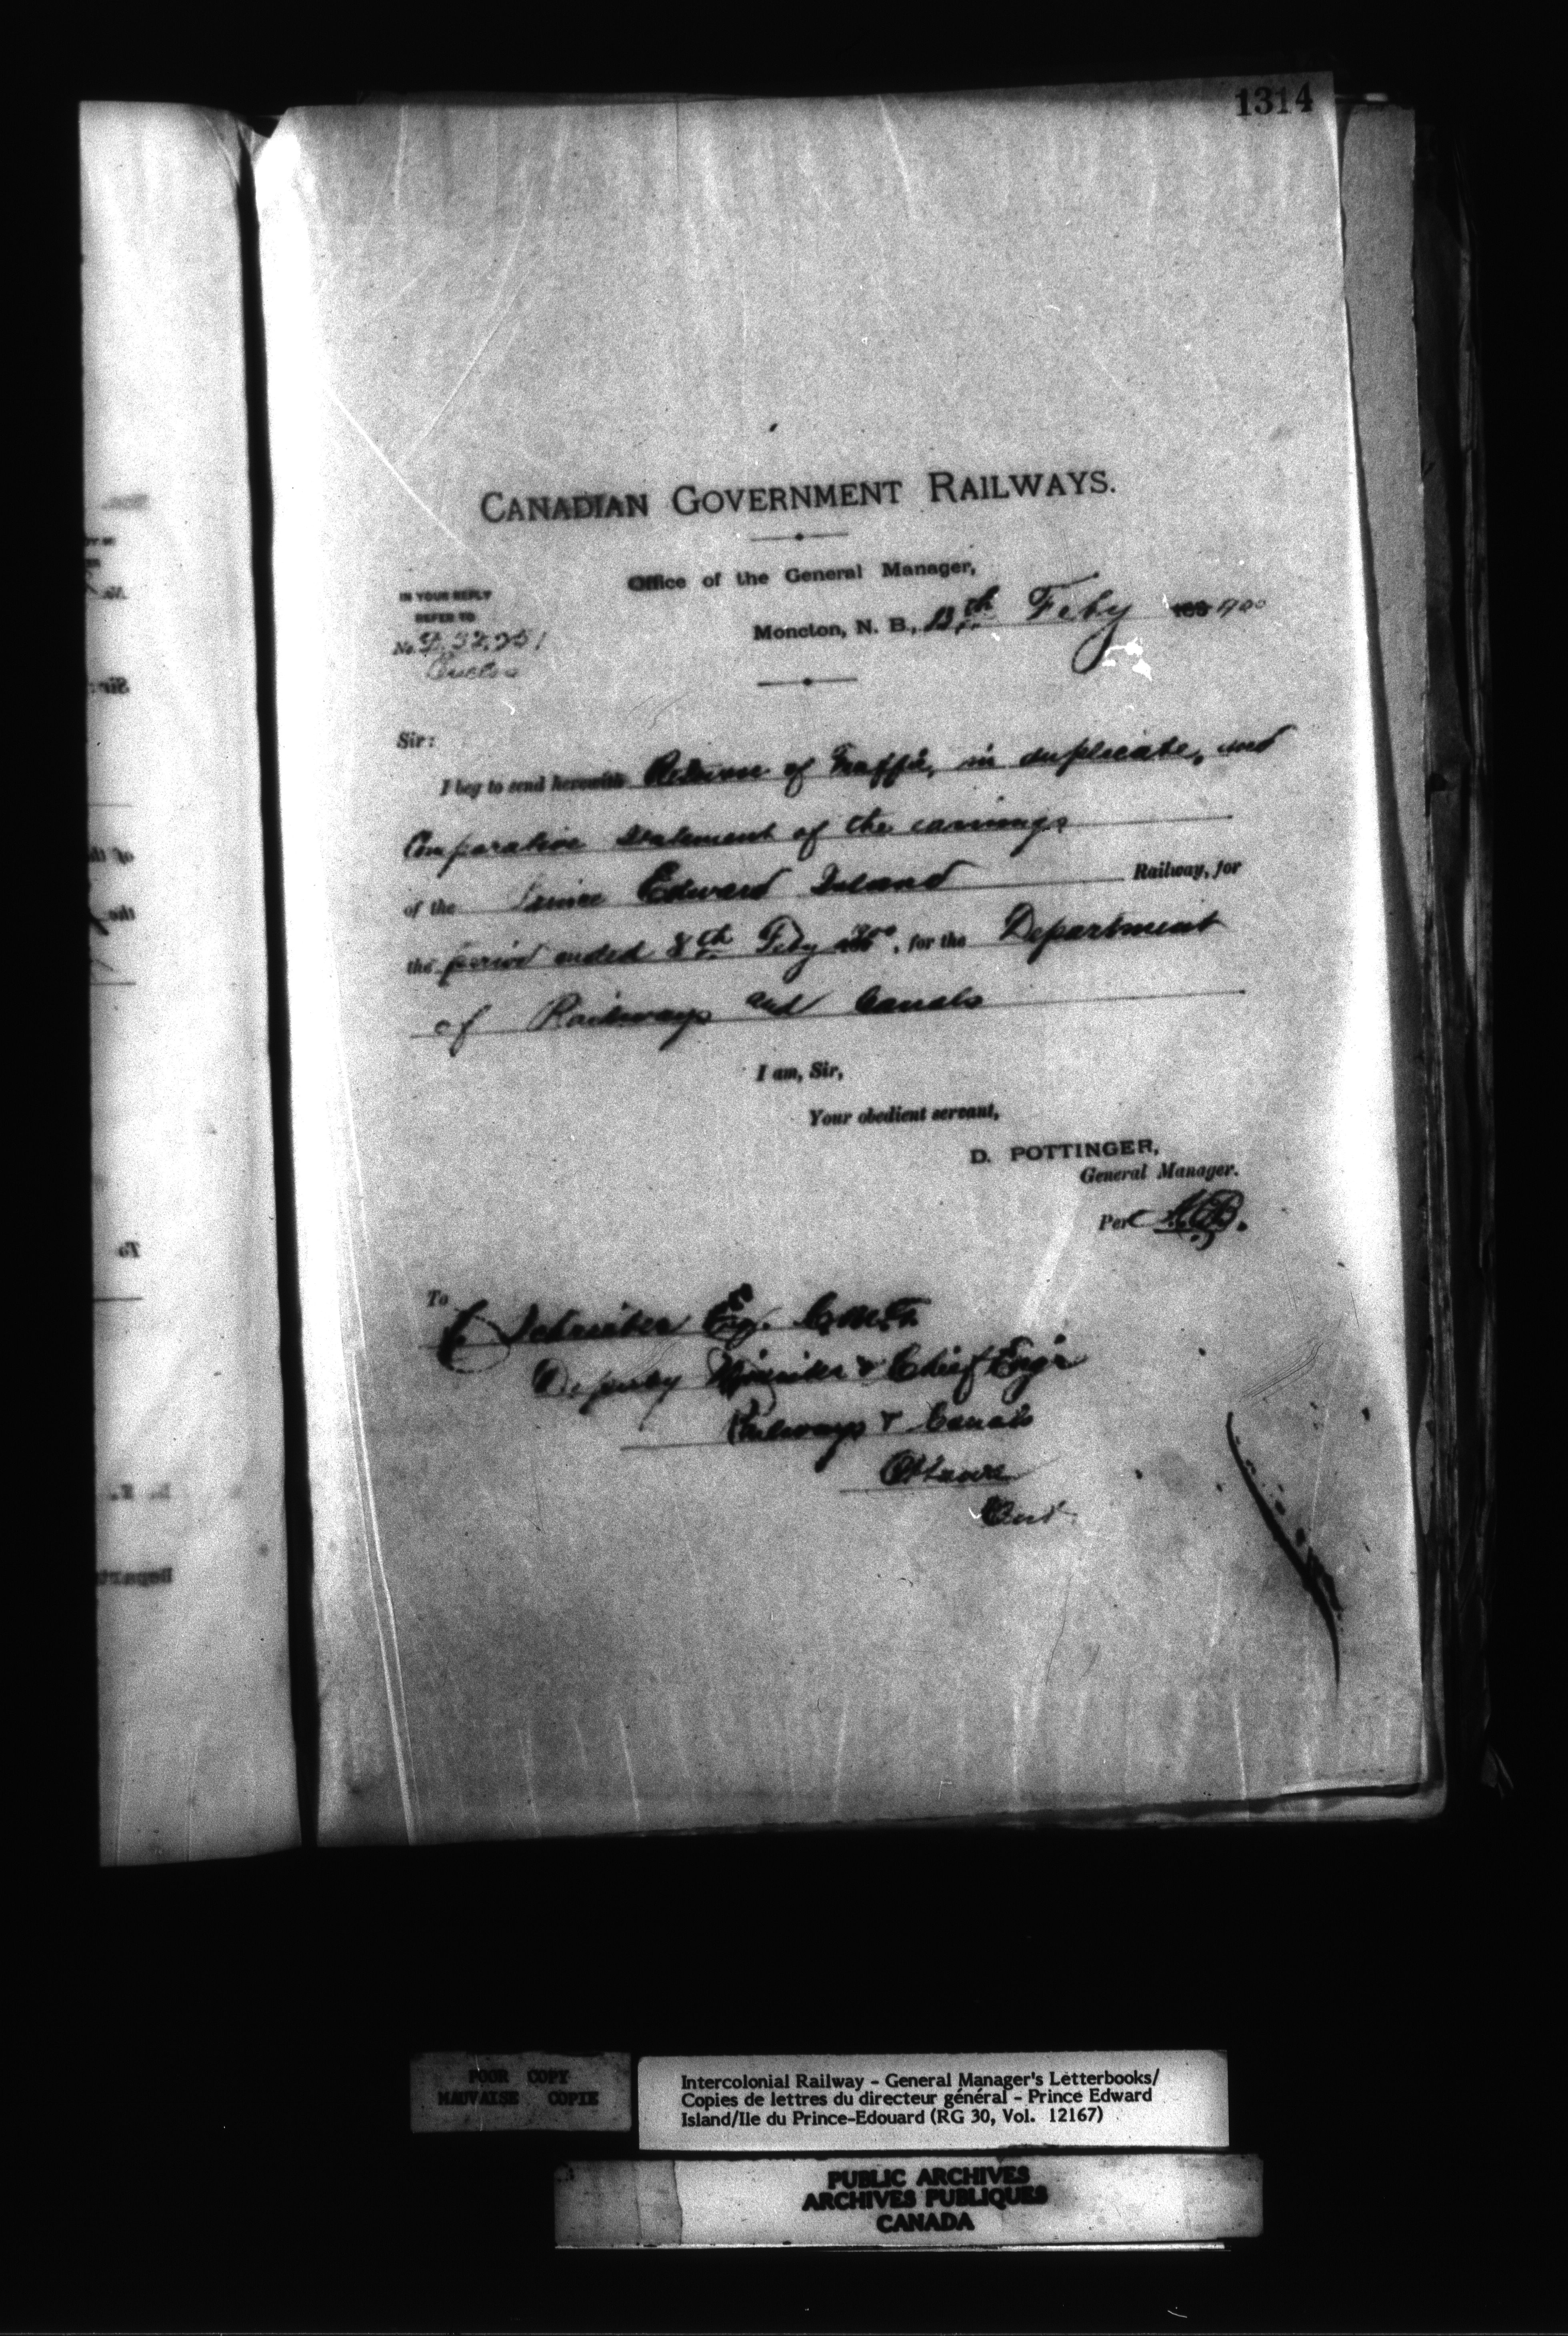 1314
CANADIAN GOVERNMENT RAILWAYS.
Office of the General Manager,
IN YOUR REPLY
REFER TO
Moncton, N. B., 13th Feby 1900
No.
Sir:
I beg to send herewith Return of Traffic, in duplicate, and
Comparative Statement of the earnings
of the Prince Edward Island Railway, for
the period ended 8th Feby 1900, for the Department
of Railways and Canals
I am, Sir,
Your obedient servant,
D. POTTINGER,
General Manager.
Per
To
C Schreiber Esq. C.M.G.
Deputy Minister & Chief Engr
Railways & Canals
Ottawa
Ont.
POOR COPY
MAUVAISE COPIE
Intercolonial Railway - General Manager's Letterbooks/
Copies de lettres du directeur général - Prince Edward
Island/Ile du Prince-Edouard (RG 30, Vol. 12167)
PUBLIC ARCHIVES
ARCHIVES PUBLIQUES
CANADA